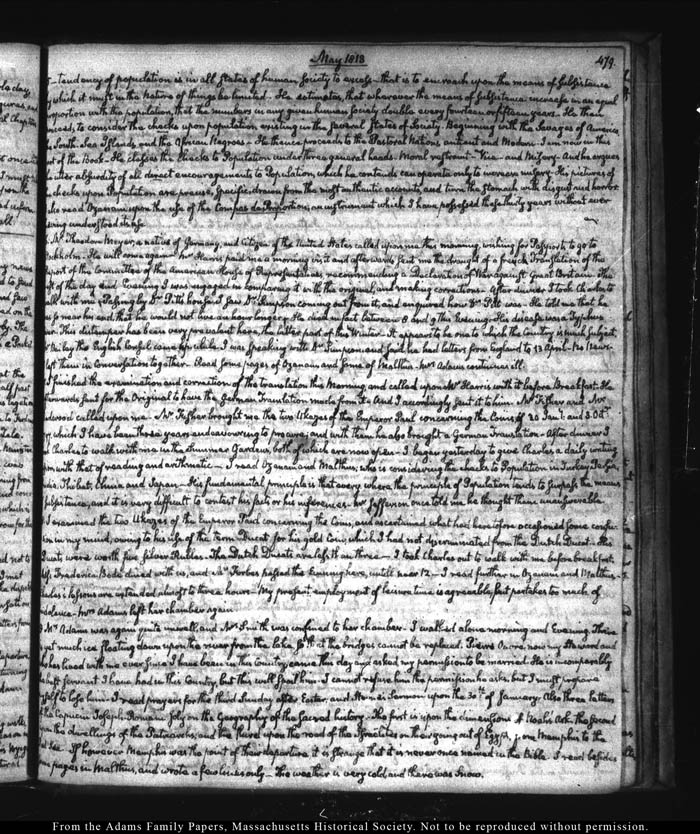 May 1813
479.
tendency of population is in all States of human Society to excess that is to encroach upon the means of Subsistence
by which it must in the nature of things be limited. He estimates, that wherever the means of Subsistence increase in an equal
proportion with the population, that the numbers in any given human Society double every fourteen or fifteen years. He then
proceeds to consider the checks upon population existing in the several States of Society. Beginning with the Savages of America,
the South-Sea Islands, and the African Negroes. He thence proceeds to the Pastoral Nations, antient and Modern. I am now in this
part of the Book. He classes the checks to Population under three general heads. Moral restraint. Vice and Misery. And he argues
the utter absurdity of all direct encouragements to Population, which he contends can operate only to increase misery. His pictures of
the checks upon Population are precise, specific, drawn from the most authentic accounts and turn the stomach with disgust and horror.
I also read Ozanam upon the use of the Compas de Proportion, an instrument which I have possessed these thirty years without ever
having understood its use.
Mr Theodore Meyer, a native of Germany, and Citizen of the United States called upon me this morning, wishing for Passports to go to
Stockholm. He will come again. Mr Harris paid me a morning visit and afterwards sent me the draught of a french Translation of the
Report of the Committee of the American House of Representatives, recommending a Declaration of War against Great Britain. The
rest of the day and Evening I was engaged in comparing it with the original, and making corrections. After dinner I took Charles to
walk with me. Passing by Dr Pitt's house I saw Dr Simpson coming out from it, and enquired how Dr Pitt was. He told me that he
was near his end that he would not live an hour longer. He died in fact between 8 and 9 this Evening. His disease was a Typhus
fever. This distemper has been very prevalent here, the latter part of this Winter. It appears to be one to which the Country is much subject.
Mr Bayley the English Consul came up while I was speaking with Dr Simpson and said he had letters from England to 13 April. No News.
I left them in Conversation together. Read some pages of Ozanam and some of Malthus. Mrs Adams continues ill.
I finished the examination and correction of the translation this Morning and called upon Mr Harris with it before Breakfast. He
afterwards sent for the Original to have the German Translation made from it and I accordingly sent it to him. Mr Fisher and Mr
called upon me. Mr Fisher brought me the two Ukazes of the Emperor Paul concerning the Coins of 20 Jany and 3 Octr
which I have been these years endeavouring to procure, and with them he also brought a German Translation. After dinner I
took Charles to walk with me in the Summer Gardens, both of which are now open. I began yesterday to give Charles a daily writing
lesson with that of reading and arithmetic. I read Ozanam and Malthus, who is considering the checks to Population in Turkey, Persia,
India, Thibet, China and Japan. His fundamental principle is that every where the principle of Population tends to surpass the means
of Subsistence, and it is very difficult to contest his facts or his inferences. Mr Jefferson once told me he thought them unanswerable.
I examined the two Ukazes of the Emperor Paul concerning the Coins, and ascertained what had heretofore occasioned some confusion
in my mind, owing to his use of the term Ducat for his gold Coin, which I had not discriminated from the Dutch Ducat. His
Ducats were worth five Silver Rubles. The Dutch Ducats are less than three. I took Charles out to walk with me before breakfast.
Frederica Bode dined with us, and Mr Forbes passed the Evening here, untill near 12. I read further in Ozanam and Malthus.
Charles's lessons are extended almost to three hours. My present employment of leisure time is agreeable, but partakes too much of
indolence. Mrs Adams left her chamber again.
Mrs Adams was again quite unwell, and Mrs Smith was confined to her chamber. I walked alone morning and Evening. There
is yet much ice floating down upon the river from the lake, so that the bridges cannot be replaced. Pierre now my Steward and
who has lived with me ever since I have been in this Country, came this day and asked my permission to be married. He is incomparably
the best servant I have had in this Country, but this will spoil him. I cannot refuse him the permission he asks, but I must prepare
myself to lose him. I read prayers for the third Sunday after Easter and Sterne's Sermon upon the 30th of January. Also three Letters
of the Capucin Joseph Romain Joly on the Geography of the Sacred history. The first is upon the dimensions of Noah's Ark. The second
upon the dwellings of the Patriarchs, and the third upon the road of the Israelites on their going out of Egypt, from Memphis to the
Red Sea. If however Memphis was the point of their departure it is strange that it is never once named in the Bible. I read besides
some pages in Malthus, and wrote a few lines only. The weather is very cold and there was Snow.
From the Adams Family Papers, Massachusetts Historical Society. Not to be reproduced without permission.